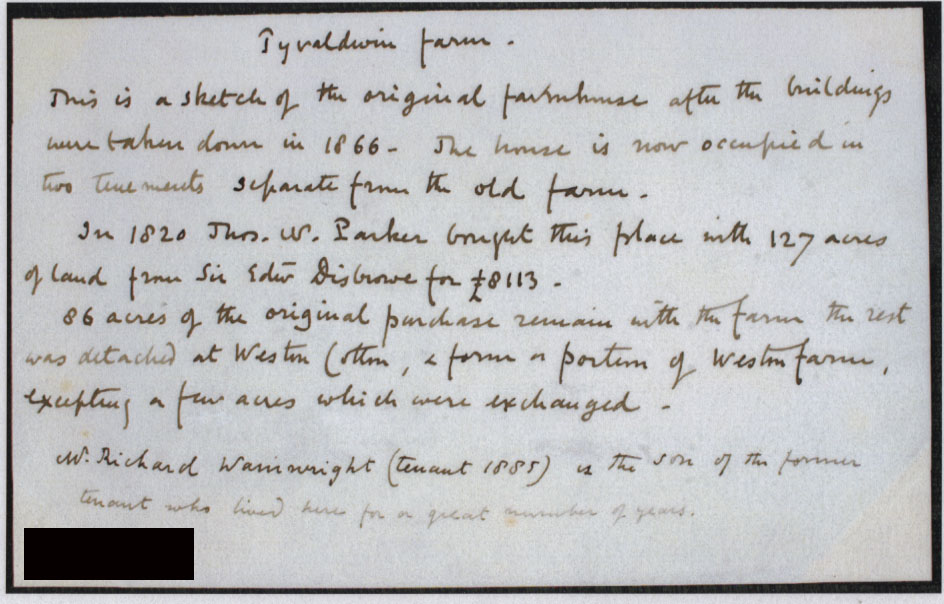 Tyvaldwin farm.
This is a sketch of the original farmhouse after the buildings
were taken down in 1866 - The house is now occupied in
two tenements separate from the old farm.
In 1820 Thos. W. Parker bought this place with 127 acres
of land from Sir Edwd Disbrowe for £8113 -
86 acres of the original purchase remain with the farm the rest
was detached at Weston Cotton, & forms a portion of Weston farm,
excepting a few acres which were exchanged -
Mr. Richard Wainwright (tenant 1885) is the son of the former
tenant who lived here for a great number of years.